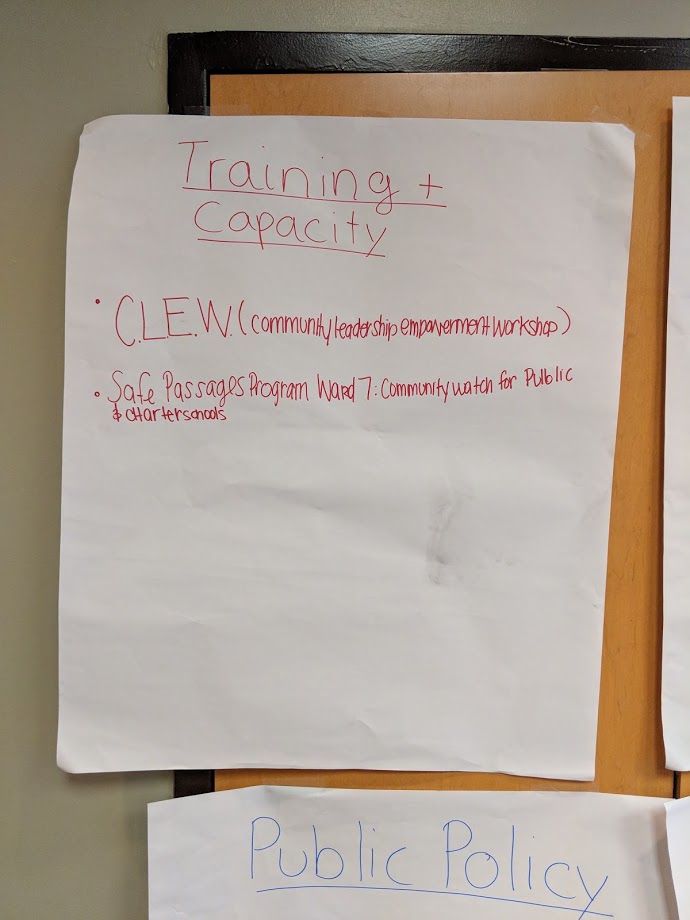 Training +
Capacity
• C.L.E.W. (community leadership empowerment workshop)
• Safe Passages Program Ward 7: Community watch for Public
& charter schools
Public Policy